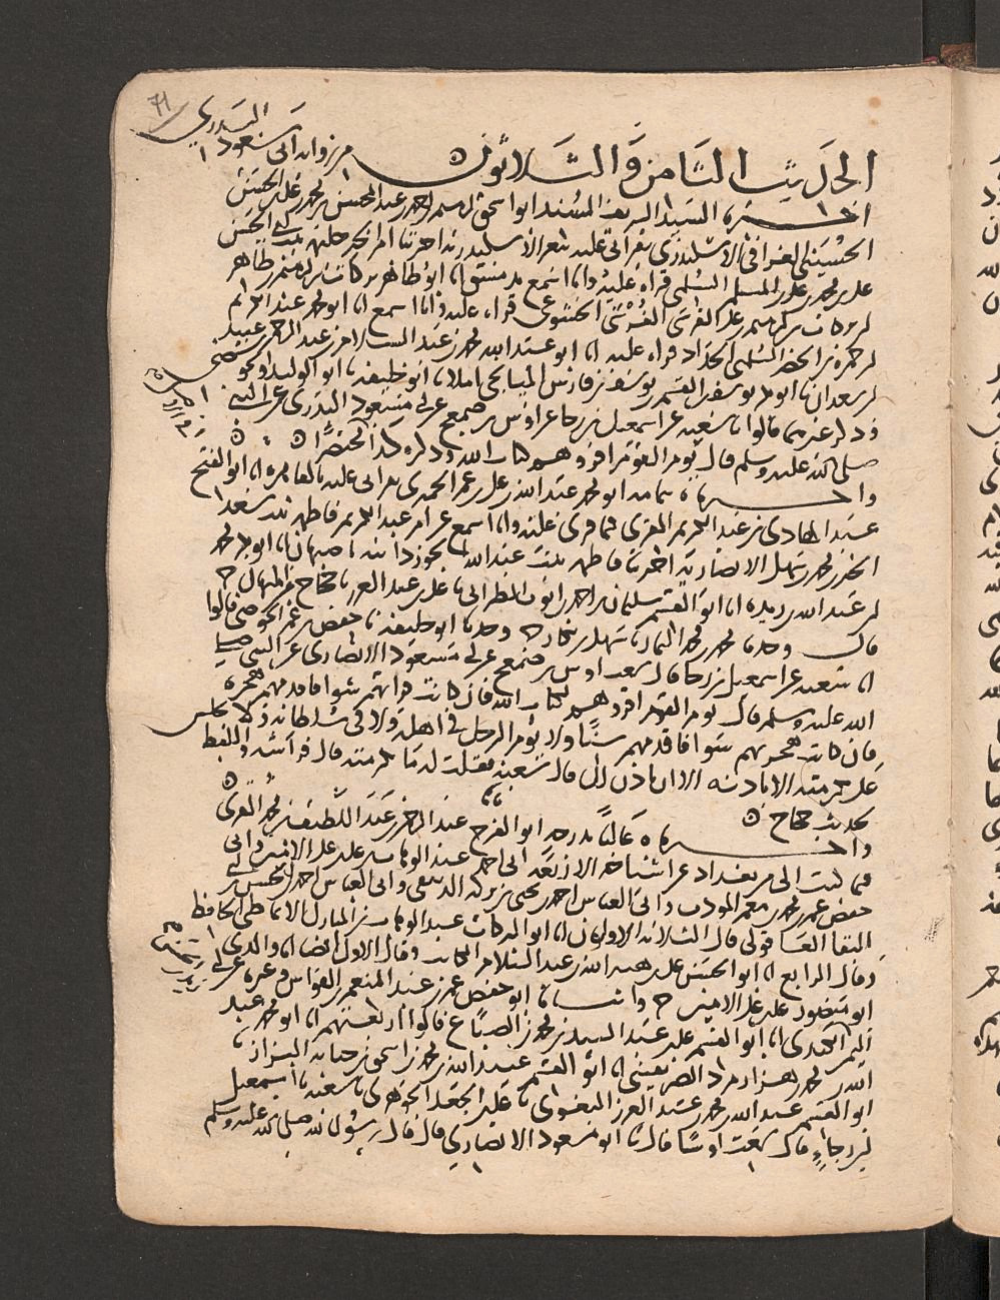 71
الحديث الثامن والثلاثون من رواية ابي مسعود البدري
اخبرنا السيد الشريف المسند ابو اسحق ابرهيم بن احمد بن عبد المحسن بن محمد بن علي الحسن
الحسيني الغرافي الاسكندري بقراتي عليه بثغر الاسكندرية
علي بن محمد بن علي بن المسلم السلمي قراة عليه وانا اسمع بدمشق انا ابو طاهر بركات بن ابرهيم بن طاهر
ابن بركات بن ابرهيم بن علي القرشي الخشوعي قراة عليه وانا اسمع انا ابو محمد عبد الكريم
ابن حمزة بن الخضر السلمي الحداد قراة عليه انا ابو عبد الله محمد بن عبد السلام بن عبد الرحمن بن عبيد
ابن سعدان نا ابو بكر يوسف بن القسم بن يوسف بن فارس الميانجي املا نا ابو خليفة نا ابو الوليد والحوضي
وذكر غيرهما قالوا نا شعبة عن اسمعيل بن رجا عن اوس بن ضمعج عن ابي مسعود البدري عن النبي
صلى الله عليه وسلم قال يوم القوم اقروهم لكتاب الله وذكره كذا مختصرا
واخبرناه بتمامه ابو محمد عبد الله بن علي بن عمر الحميري بقراتي عليه بالقاهرة انا ابو الفتح
عبد الهادي بن عبد الكريم المقري فيما قري عليه وانا اسمع عن ام عبد الكريم فاطمة بنت سعد
الخير بن محمد بن سهل الانصارية اخبرتنا فاطمة بنت عبد الله الجوزدانية باصبهان انا ابو بكر محمد
ابن عبد الله بن ريذه انا ابو القسم سليمان بن احمد بن ايوب الطبراني نا علي بن عبد العزيز نا حجاج بن المنهال ح
قال وحدثنا محمد بن محمد التمار نا سهل بن بكار ح وحدثنا ابو خليفة نا حفص بن عمر الحوضي قالوا
انا شعبة عن اسمعيل بن رجا قال سمعت اوس بن ضمعج عن ابي مسعود الانصاري عن النبي صلى
الله عليه وسلم قال يوم القوم اقروهم لكتاب الله فان كانت قراتهم سوا فاقدمهم هجرة
فان كانت هجرتهم سوا فاقدمهم سنا ولا يوم الرجل في اهله ولا في سلطانه ولا يجلس
على تكرمته الا باذنه الا ان ياذن لك قال شعبة فقلت له ما تكرمته قال فراشه واللفظ
لحديث حجاج
واخبرناه عاليا بدرجة ابو الفرج عبد الرحمن بن عبد اللطيف بن محمد المقري
فيما كتب الي من بغداد عن اشياخه الاربعة ابي احمد عبد الوهاب بن علي بن علي الامين وابي
حفص عمر بن محمد بن معمر المودب وابي العباس احمد بن يحيى بن بركة الدبيقي وابي العباس احمد بن الحسن بن ابي
البقا العاقولي قال الثلاثة الاولون انا ابو البركات عبد الوهاب بن المبارك الانماطي الحافظ
وقال الرابع انا ابو الحسن علي بن هبة الله بن عبد السلام الكاتب وقال الاول ايضا انا والدي
ابو منصور علي بن علي الامين ح وانبانا ابو حفص عمر بن عبد المنعم بن القواس وغيره عن ابي
اليمن الكندي انا ابو القسم علي بن عبد السيد بن محمد بن الصباغ قالوا اربعتهم انا ابو محمد عبد
الله بن محمد بن هزارمرد الصريفيني انا ابو القسم عبيد الله بن محمد بن اسحق بن حبابة البزاز نا
ابو القسم عبد الله بن محمد بن عبد العزيز البغوي نا علي بن الجعد الجوهري نا شعبة نا اسمعيل
ابن رجاء قال سمعت اوسا قال نا ابو مسعود الانصاري قال قال رسول الله صلى الله عليه وسلم